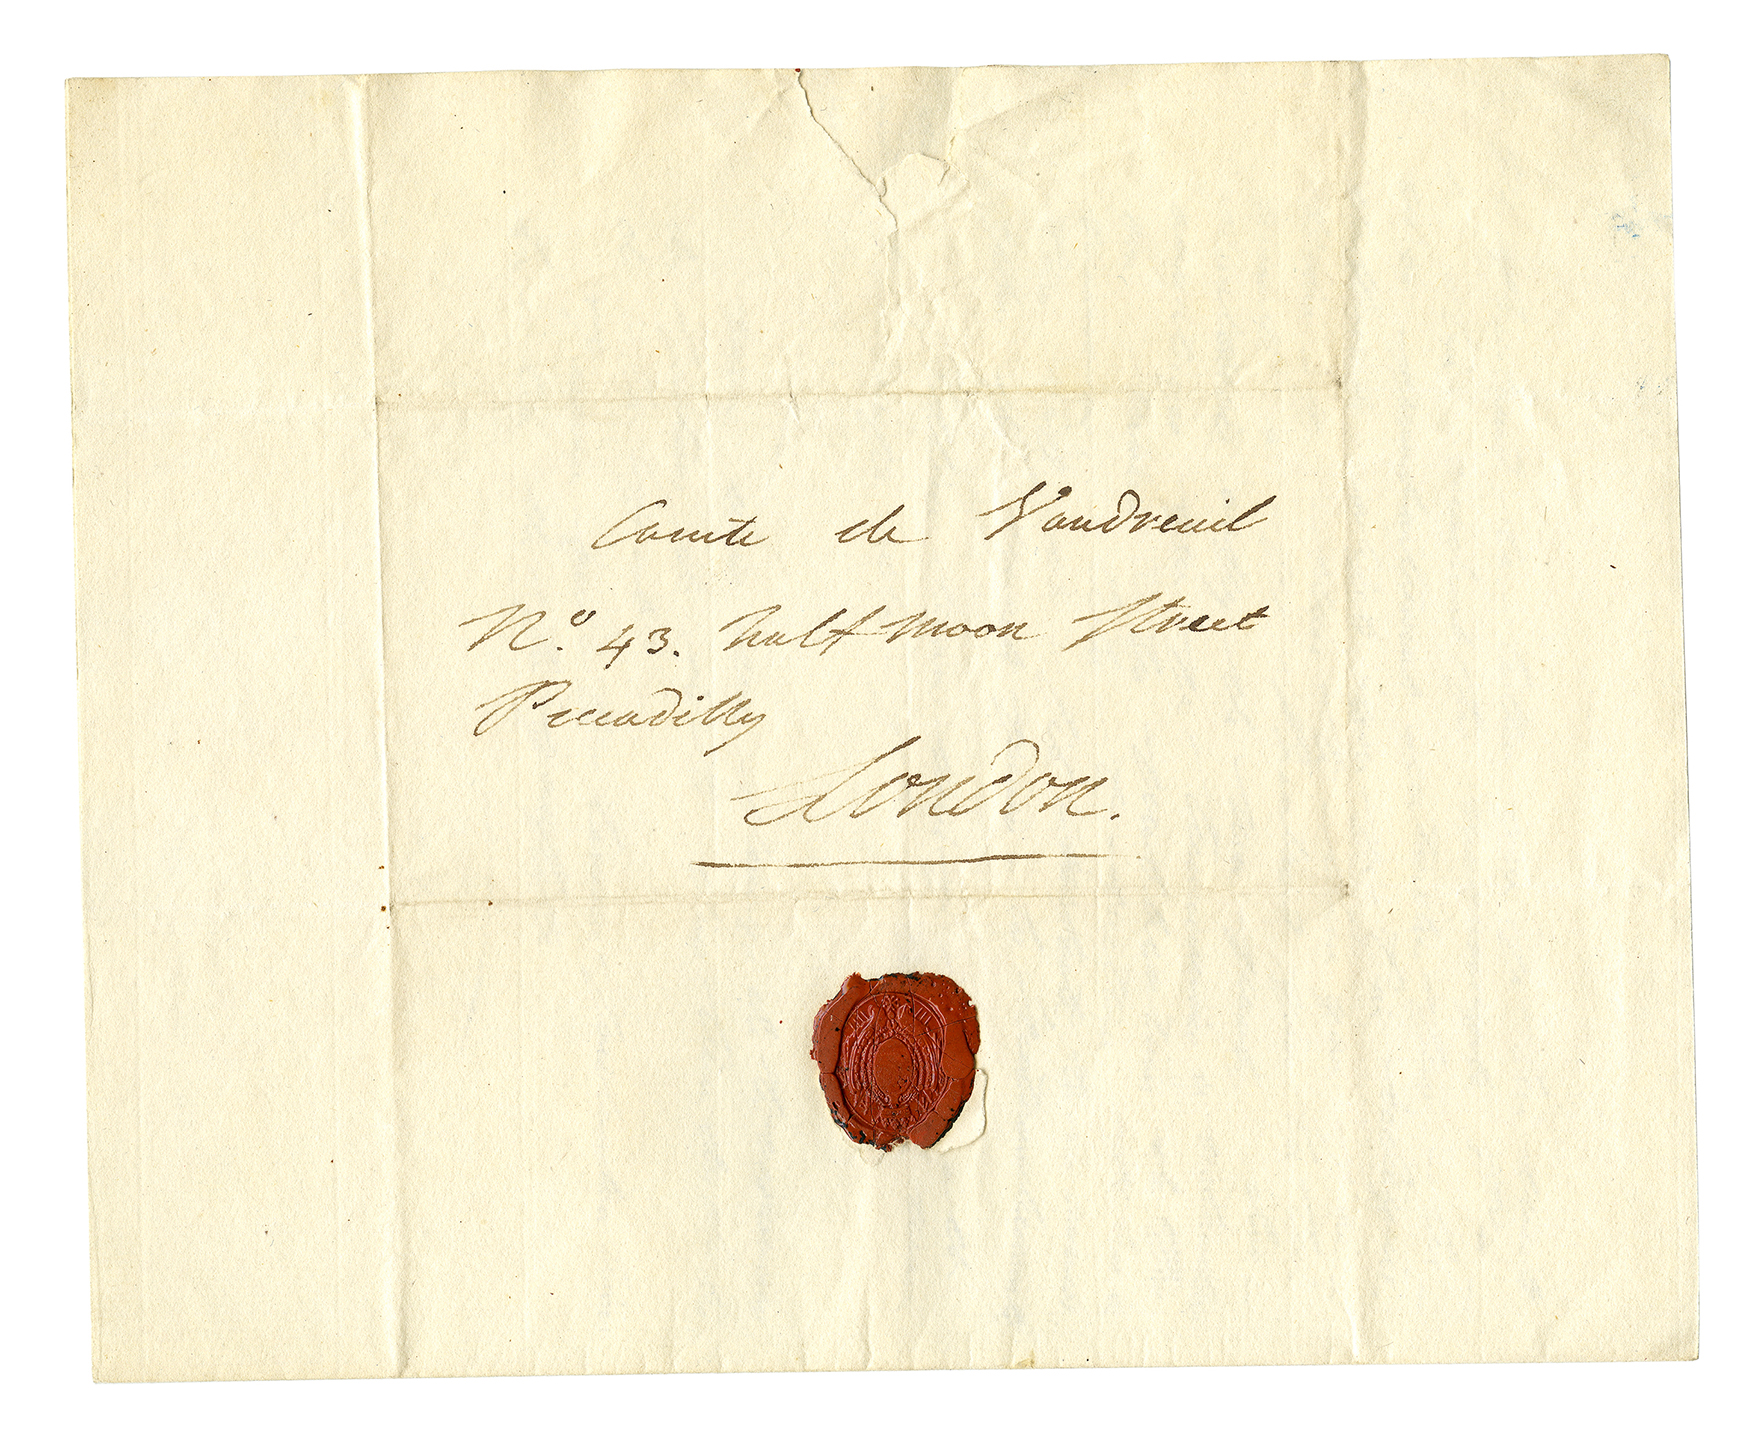 Comte de Vaudreuil
No. 43. half moon Street
Piccadilly
London.